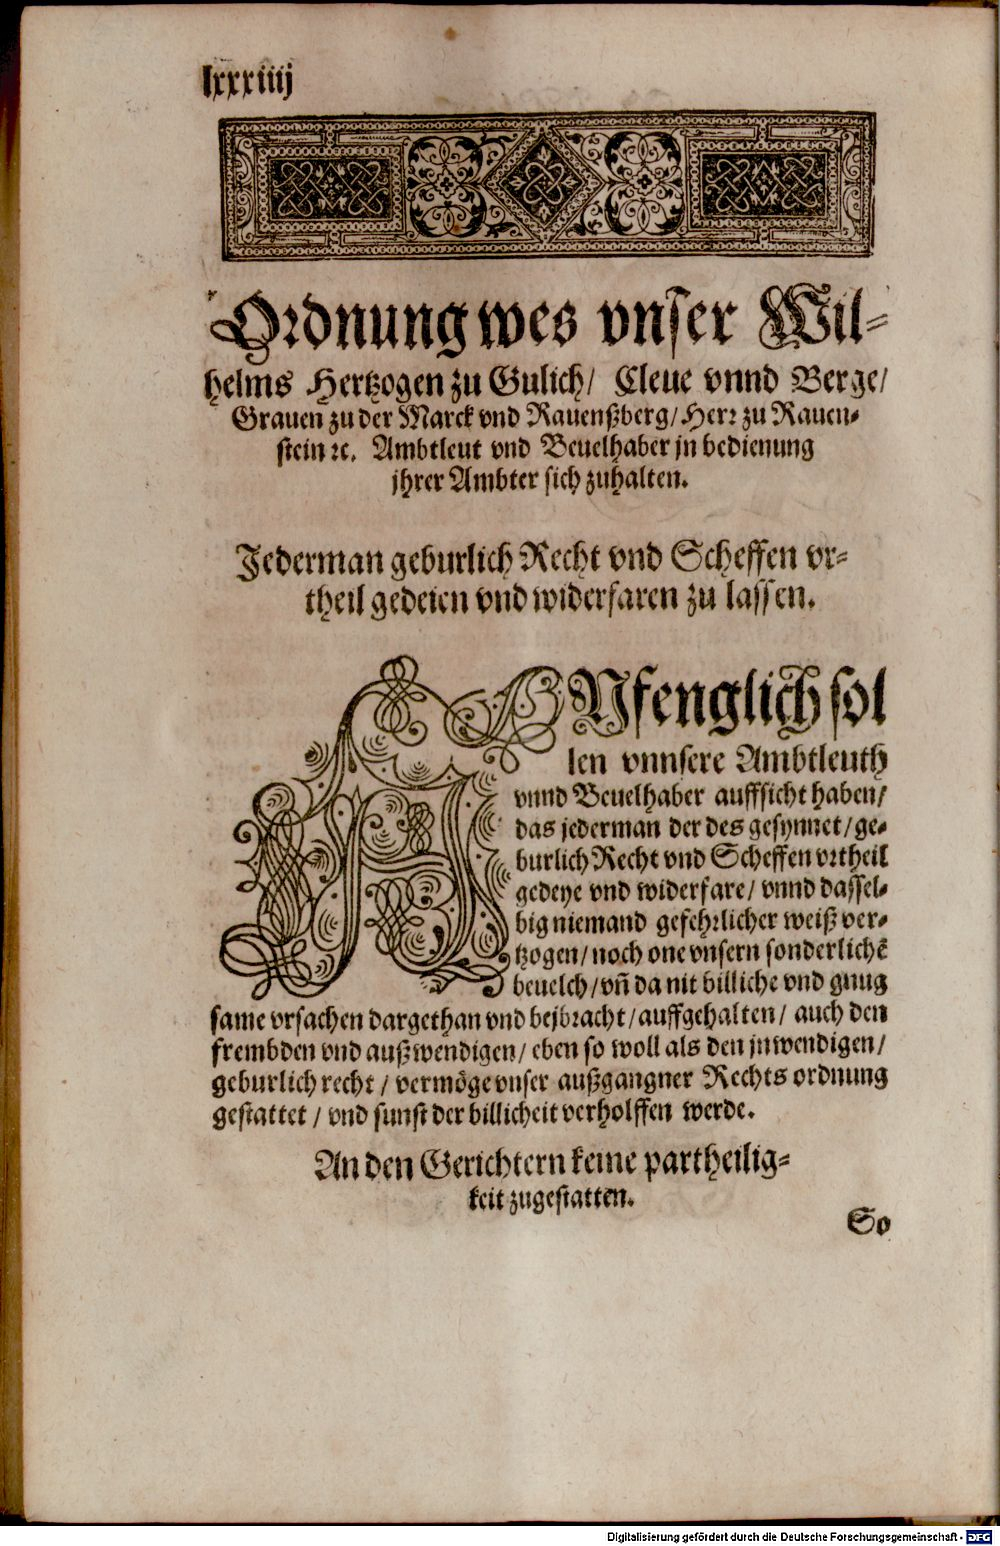 lxxxiiij
Ordnung wes vnser Wil-
helms Hertzogen zu Gulich/ Cleue vnnd Berge/
Grauen zu der Marck vnd Rauenßberg/ Herr zu Rauen-
stein ꝛc. Ambtleut vnd Beuelhaber jn bedienung
jhrer Ambter sich zuhalten.
Jederman geburlich Recht vnd Scheffen vr-
theil gedeien vnd widerfaren zu lassen.
ANfenglich sol
len vnnsere Ambtleuth
vnnd Beuelhaber auffsicht haben/
das jederman der des gesynnet/ ge-
burlich Recht vnd Scheffen vrtheil
gedeye vnd widerfare/ vnnd dassel-
big niemand gefehrlicher weiß ver-
tzogen/ noch one vnsern sonderlichē
beuelch/ vn̄ da nit billiche vnd gnug
same vrsachen dargethan vnd bejbracht/ auffgehalten/ auch den
frembden vnd außwendigen/ eben so woll als den jnwendigen/
geburlich recht/ vermöge vnser außgangner Rechts ordnung
gestattet/ vnd sunst der billicheit verholffen werde.
An den Gerichtern keine partheilig-
keit zugestatten.
So
Digitalisierung gefördert durch die Deutsche Forschungsgemeinschaft - DFG